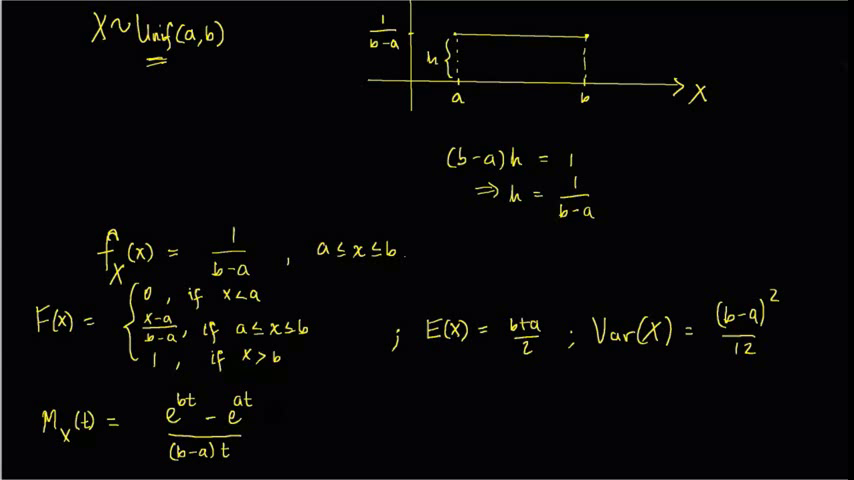 X ~ Unif(a,b)
1/(b-a)
h
a b X
(b-a)h = 1
⇒ h = 1/(b-a)
f_X(x) = 1/(b-a) , a ≤ x ≤ b.
F(x) = { 0 , if x < a
(x-a)/(b-a) , if a ≤ x ≤ b ; E(X) = (b+a)/2 ; Var(X) = (b-a)^2/12
1 , if x > b
M_X(t) = (e^{bt} - e^{at})/((b-a)t)